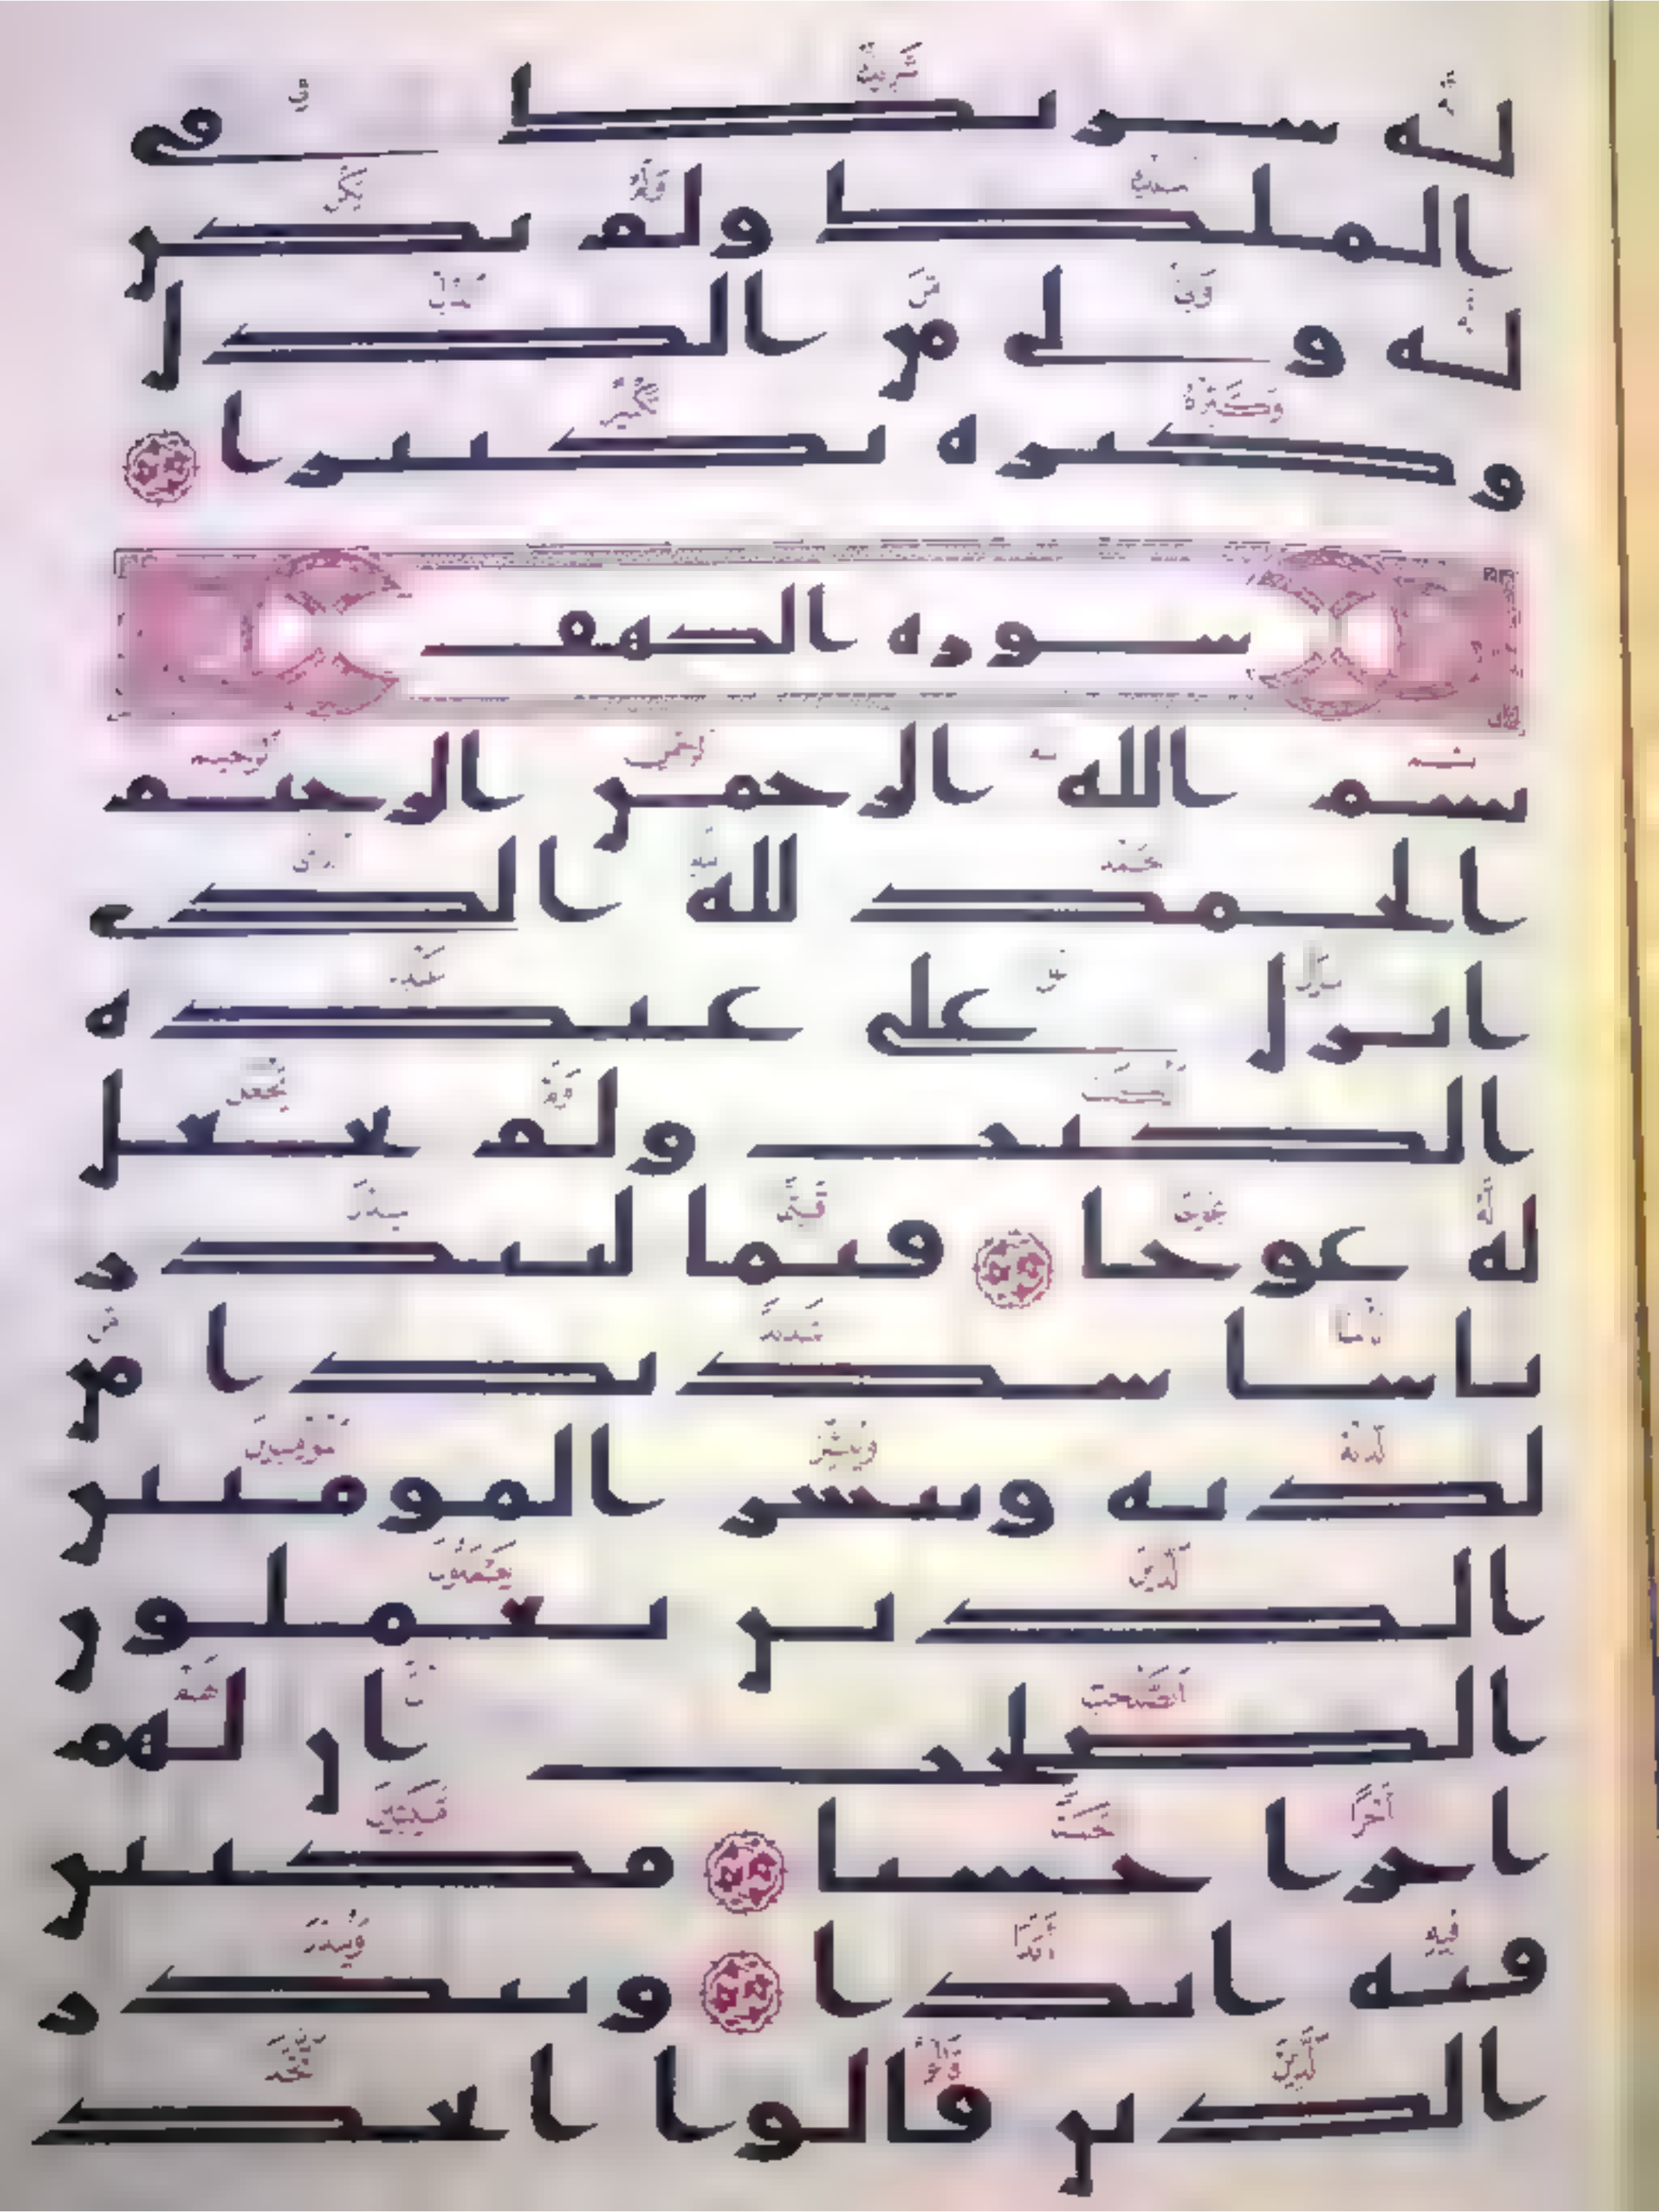 له شريك في
الملك ولم يكن
له ولي من الذل
وكبره تكبيرا
سورة الكهف
بسم الله الرحمن الرحيم
الحمد لله الذي
انزل على عبده
الكتب ولم يجعل
له عوجا قيما لينذر
باسا شديدا من
لدنه ويبشر المومنين
الذين يعملون
الصلحت ان لهم
اجرا حسنا مكثين
فيه ابدا وينذر
الذين قالوا اتخذ